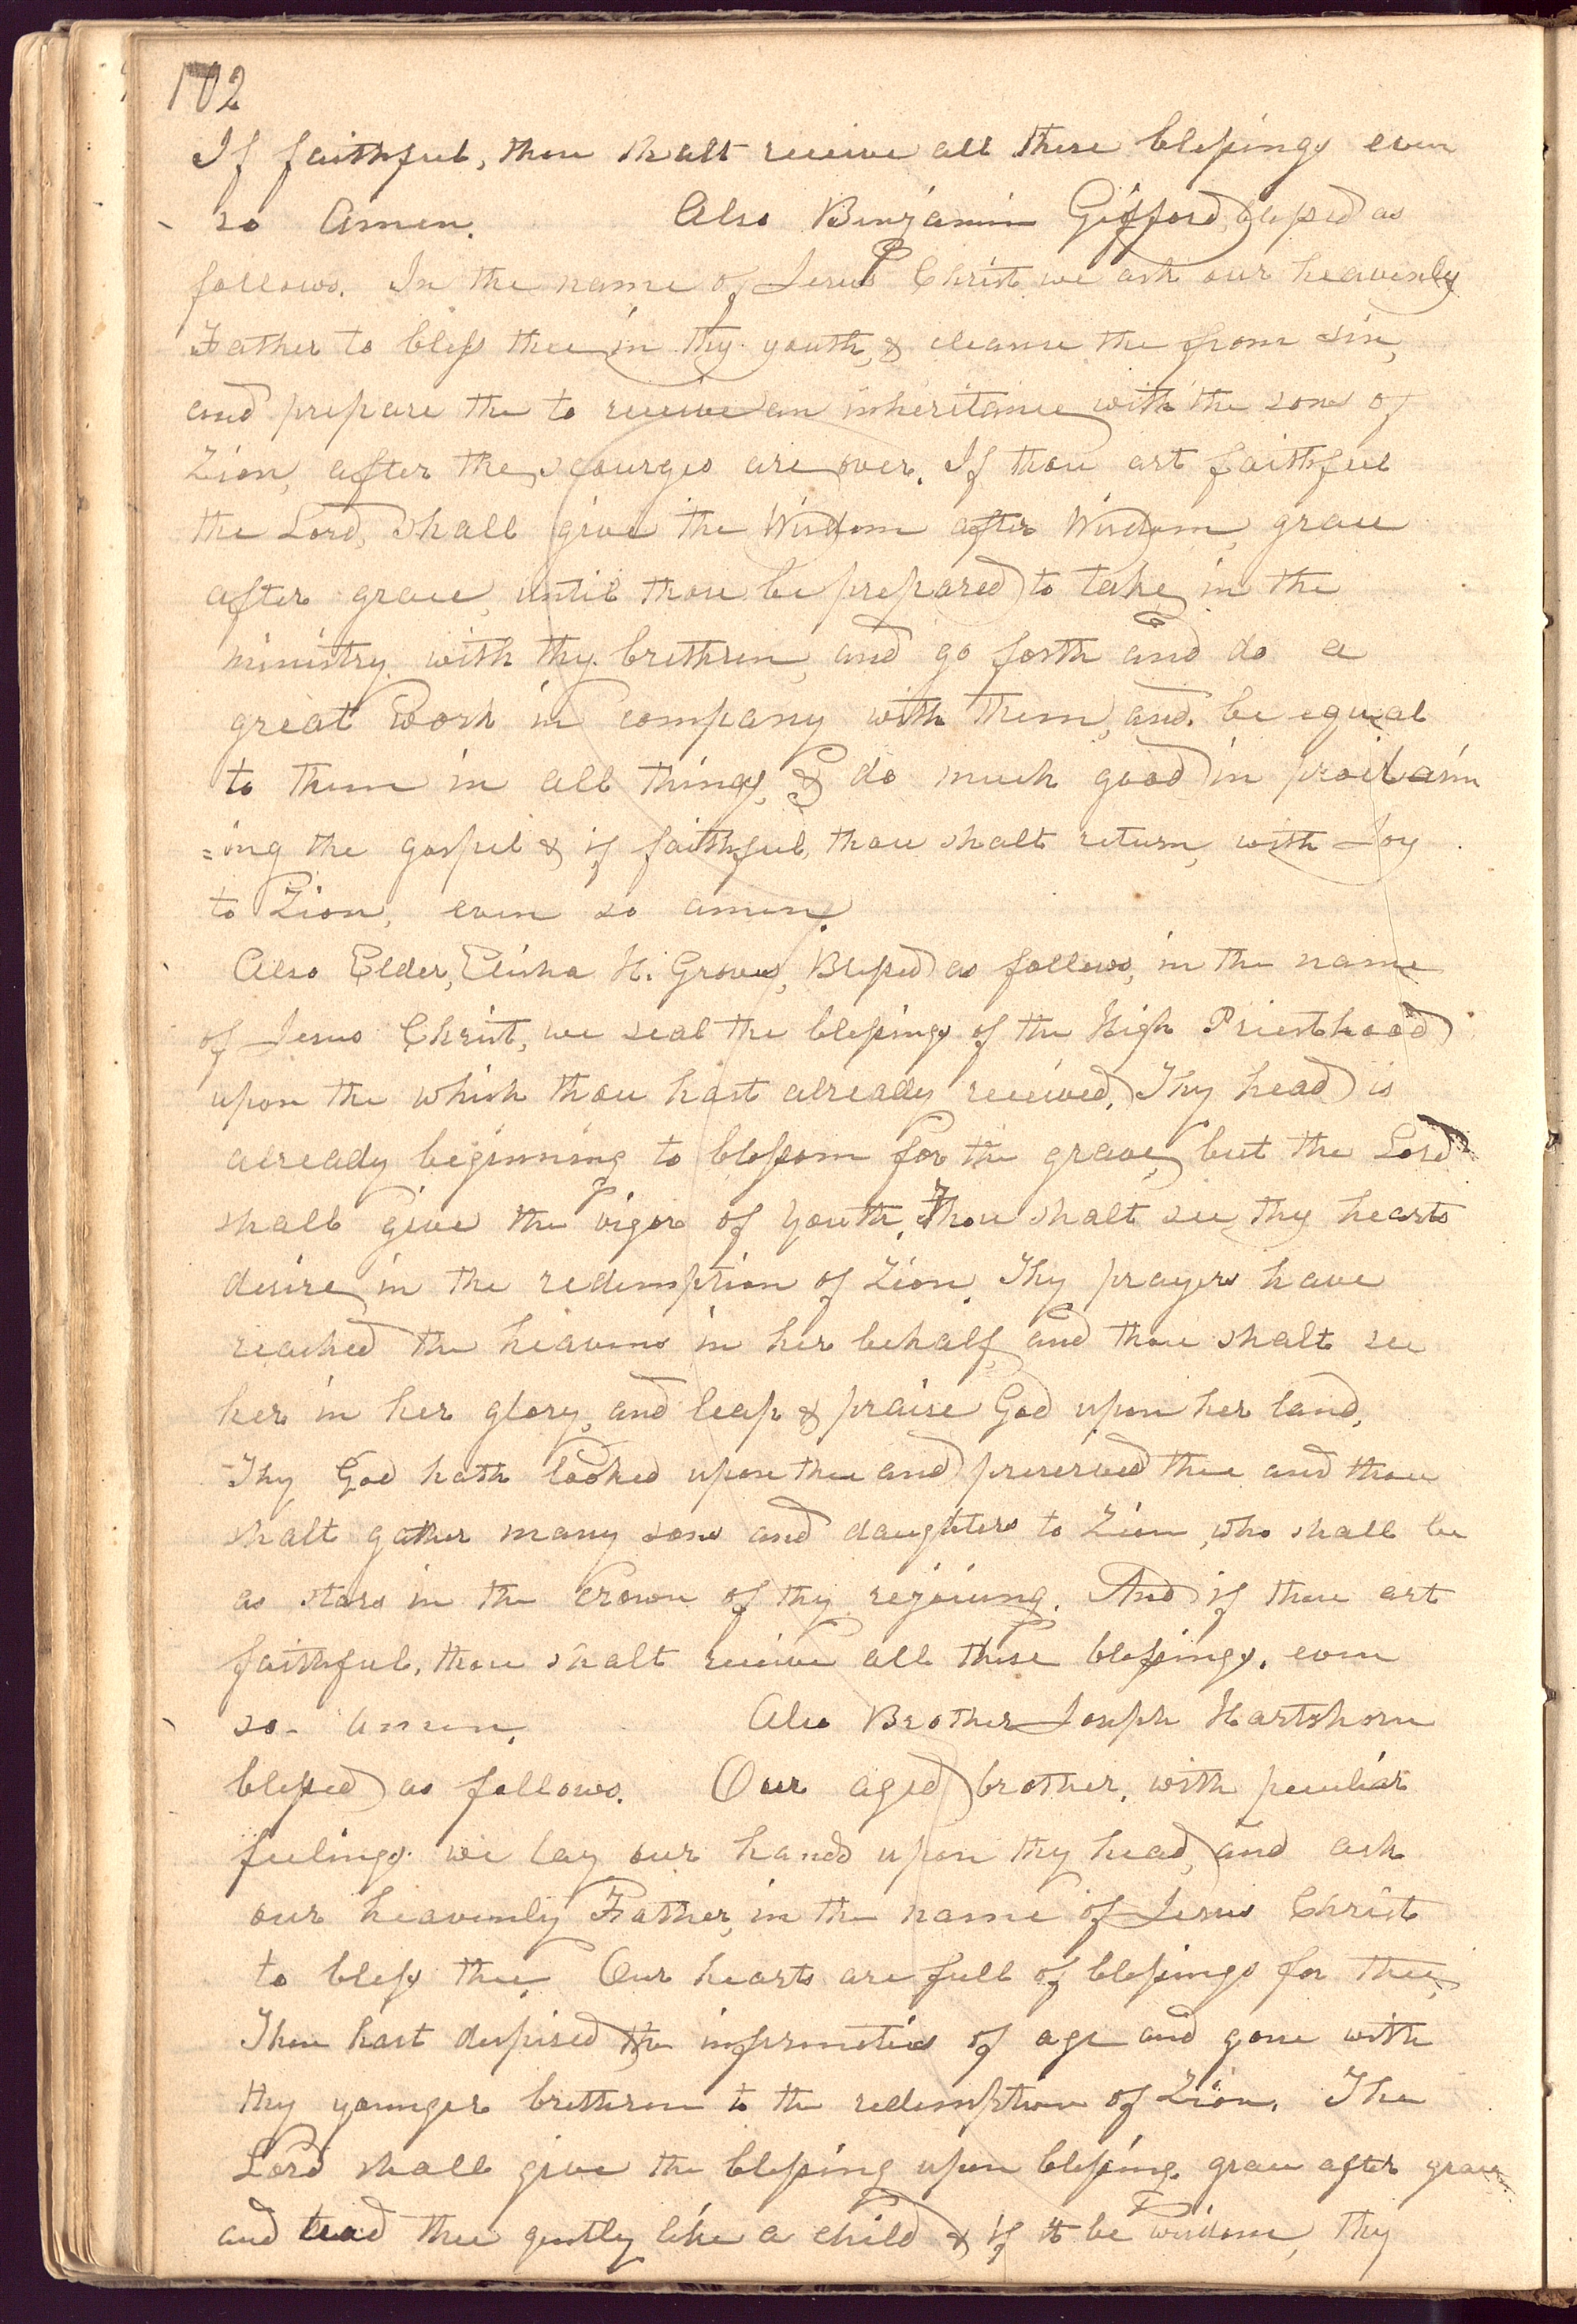 102
If faithful, thou shalt receive all these blessings even
so Amen. Also Benjamin Gifford, blessed as
follows. In the name of Jesus Christ we ask our heavenly
Father to bless thee in thy youth, & cleanse the from sin,
and prepare the to receive an inheritance with the sons of
Zion, after the scourges are over. If thou art faithful
the Lord, shall give the Wisdom after Wisdom, grace
after grace, until thou be prepared to take in the
ministry with thy brethren, and go forth and do a
great work in company with them, and be equal
to them in all things, & do much good in proclaim
=ing the gospel & if faithful, thou shalt return, with Joy
to Zion, even so amen.
Also Elder, Elisha H. Groves, Blessed as follows, in the name
of Jesus Christ, we seal the blessings of the High Priesthood
upon the which thou hast already received. Thy head is
already beginning to blossom for the grave, but the Lord
shall give the vigor of youth. Thou shalt see thy hearts
desire in the redemption of Zion. Thy prayers have
reached the heavens in her behalf, and thou shalt see
her in her glory, and leap & praise God upon her land,
Thy God hath looked upon thee and preserved thee and thou
shalt gather many sons and daughters to Zion, who shall be
as stars in the crown of thy rejoicing. And if thou art
faithful, thou shalt receive all these blessings. even
so. amen. Also Brother Joseph Hartshorn
blessed as follows. Our aged brother, with peculiar
feelings we lay our hands upon thy head, and ask
our heavenly Father, in the name of Jesus Christ
to bless thee. Our hearts are full of blessings for thee,
Thou hast despised the infirmities of age and gone with
thy younger brethren to the redemption of Zion. The
Lord shall give the blessing upon blessing. grace after grace
and lead thee gently like a child & if it be wisdom, thy